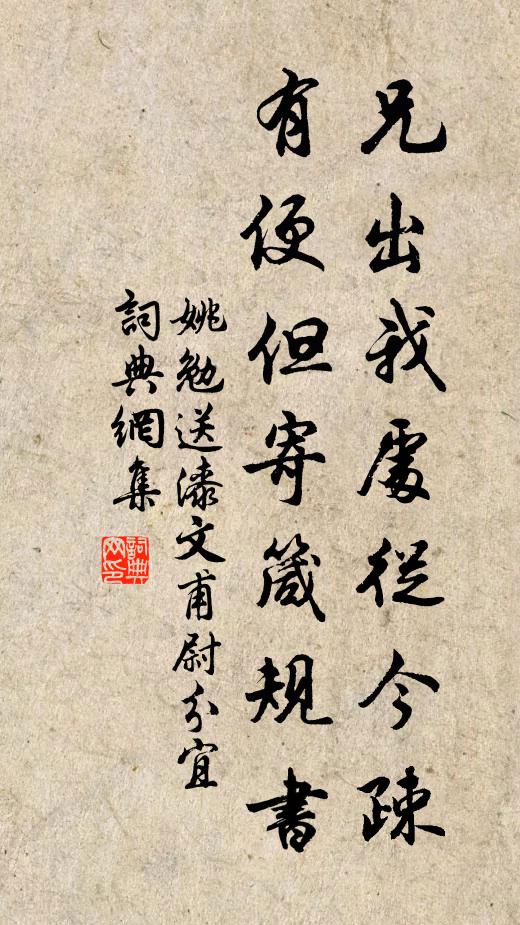 兄出我處從今疎
有便但寄箴規書
姚勉送漆文甫尉分宜
詞典網集
詞典網印